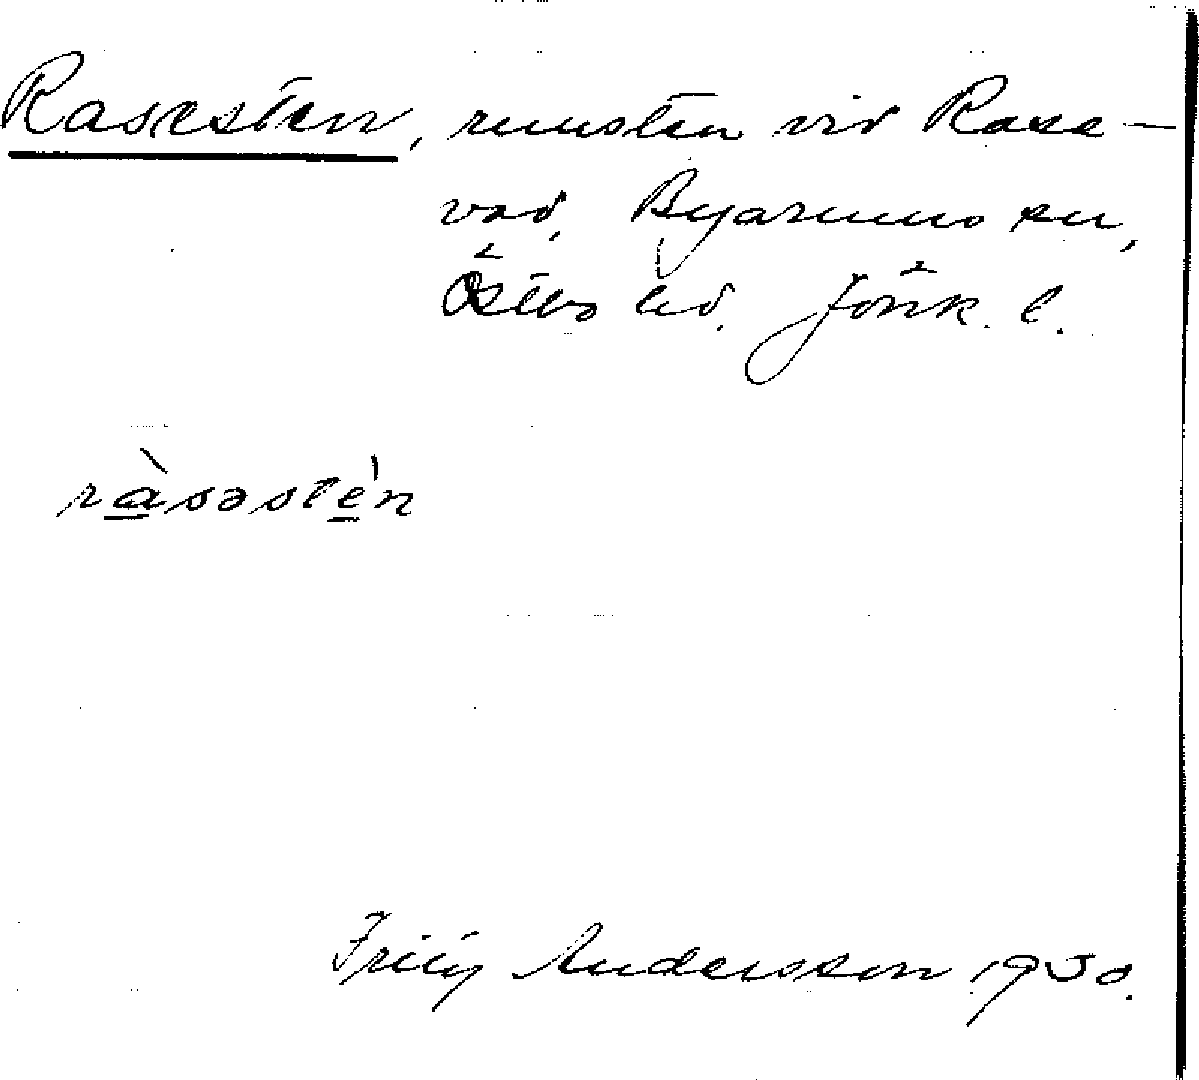 Rasesten, runsten vid Rase-
vad, Byarums sn,
Östbo hd. Jönk. l.
ràsəstén
Fritz Andersson 1930.